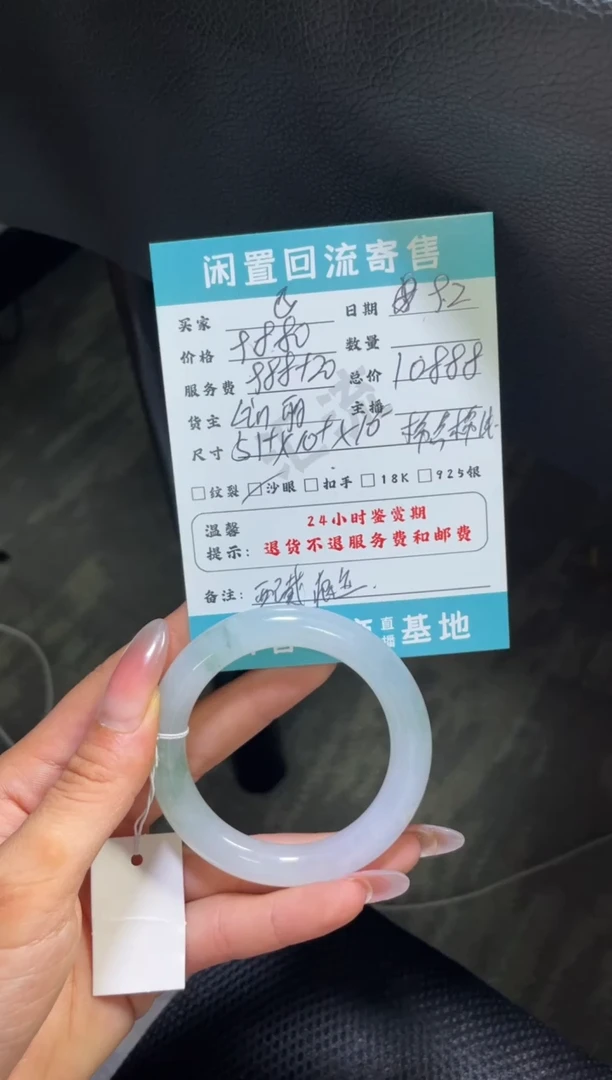 闲置回流寄售
买家 日期 9.2
价格 9880 数量
服务费 988+20 总价 10888
货主 主播
尺寸 51+X10+X10
□纹裂 □沙眼 □扣手 □18K □925银
温馨提示: 24小时鉴赏期
退货不退服务费和邮费
备注: 配戴
直播基地